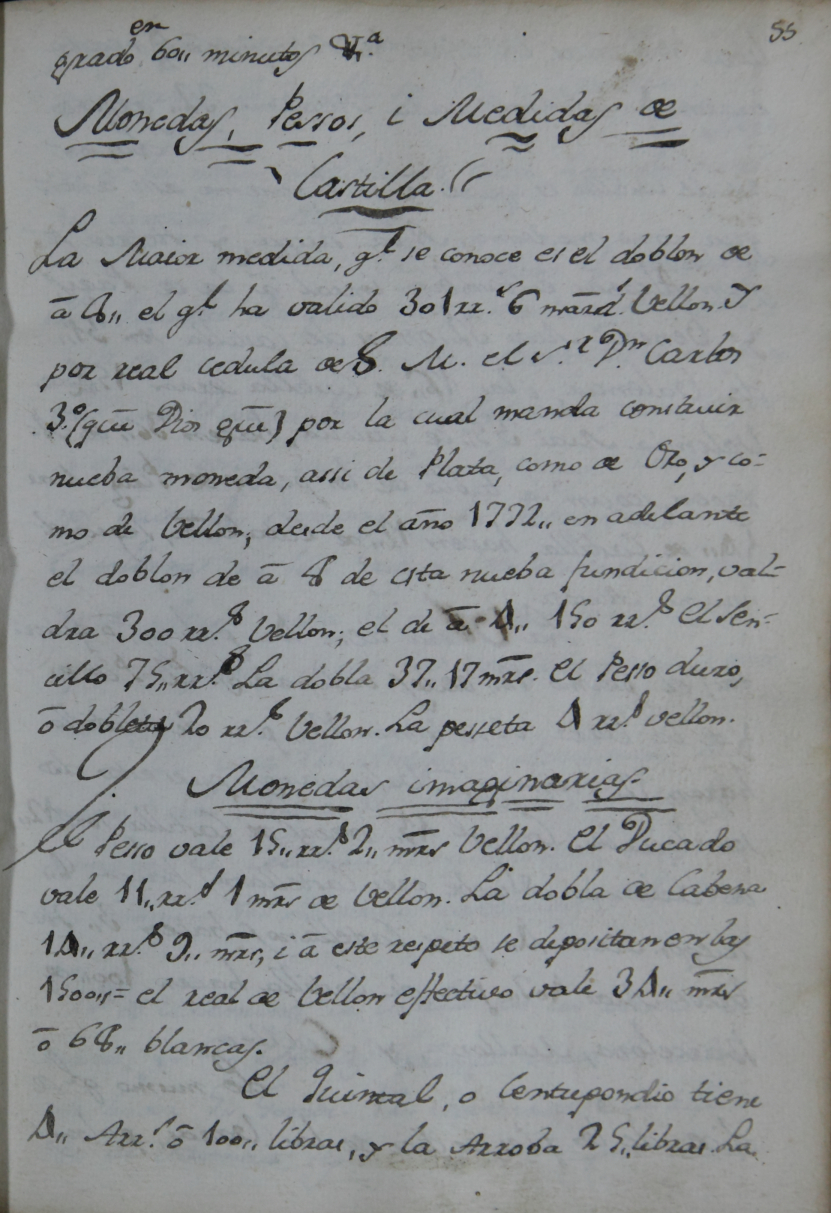 55
en
grado 60,, minutos &.ª
Monedas, Pessos, i Medidas de
Castilla.
La Maior medida, q.e se conoce es el doblon de
â 8,, el q.l ha valido 301 rr.s 6 mâravd.s Vellon. Y
por real cedula de S. M. el S.r D.n Carlos
3.º (que Dios gûe) por la cual manda construir
nueba moneda, assi de Plata, como de Oro, y co=
mo de Vellon; desde el año 1772,, en adelante
el doblon de â 8 de esta nueba fundicion, val-
dra 300 rr.s Vellon; el de â 4,, 150 rr.s El Sen-
cillo 75,, rr.s La dobla 37,, 17 mrs. El Pesso duro,
ô dobleta 20 rr.s Vellon. La pesseta 4 rr.s vellon.
Monedas imaginarias.
El Pesso vale 15,, rr.s 2,, mrs Vellon. El Ducado
vale 11,, rr.s 1 mrs de Vellon. La dobla de Cabeza
14,, rr.s 9,, mrs, i â este respeto se depositan en las
1500,,= el real de Vellon effectivo vale 34,, mrs
ô 68,, blancas.
El Quintal, o Centupondio tiene
4,, Arr.s ô 100,, libras, y la Arroba 25,, libras. La